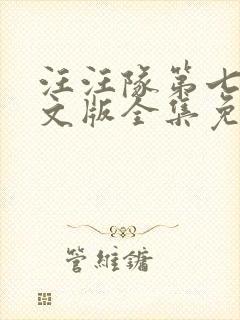 汪汪队第七
文版全集免
管維鏞